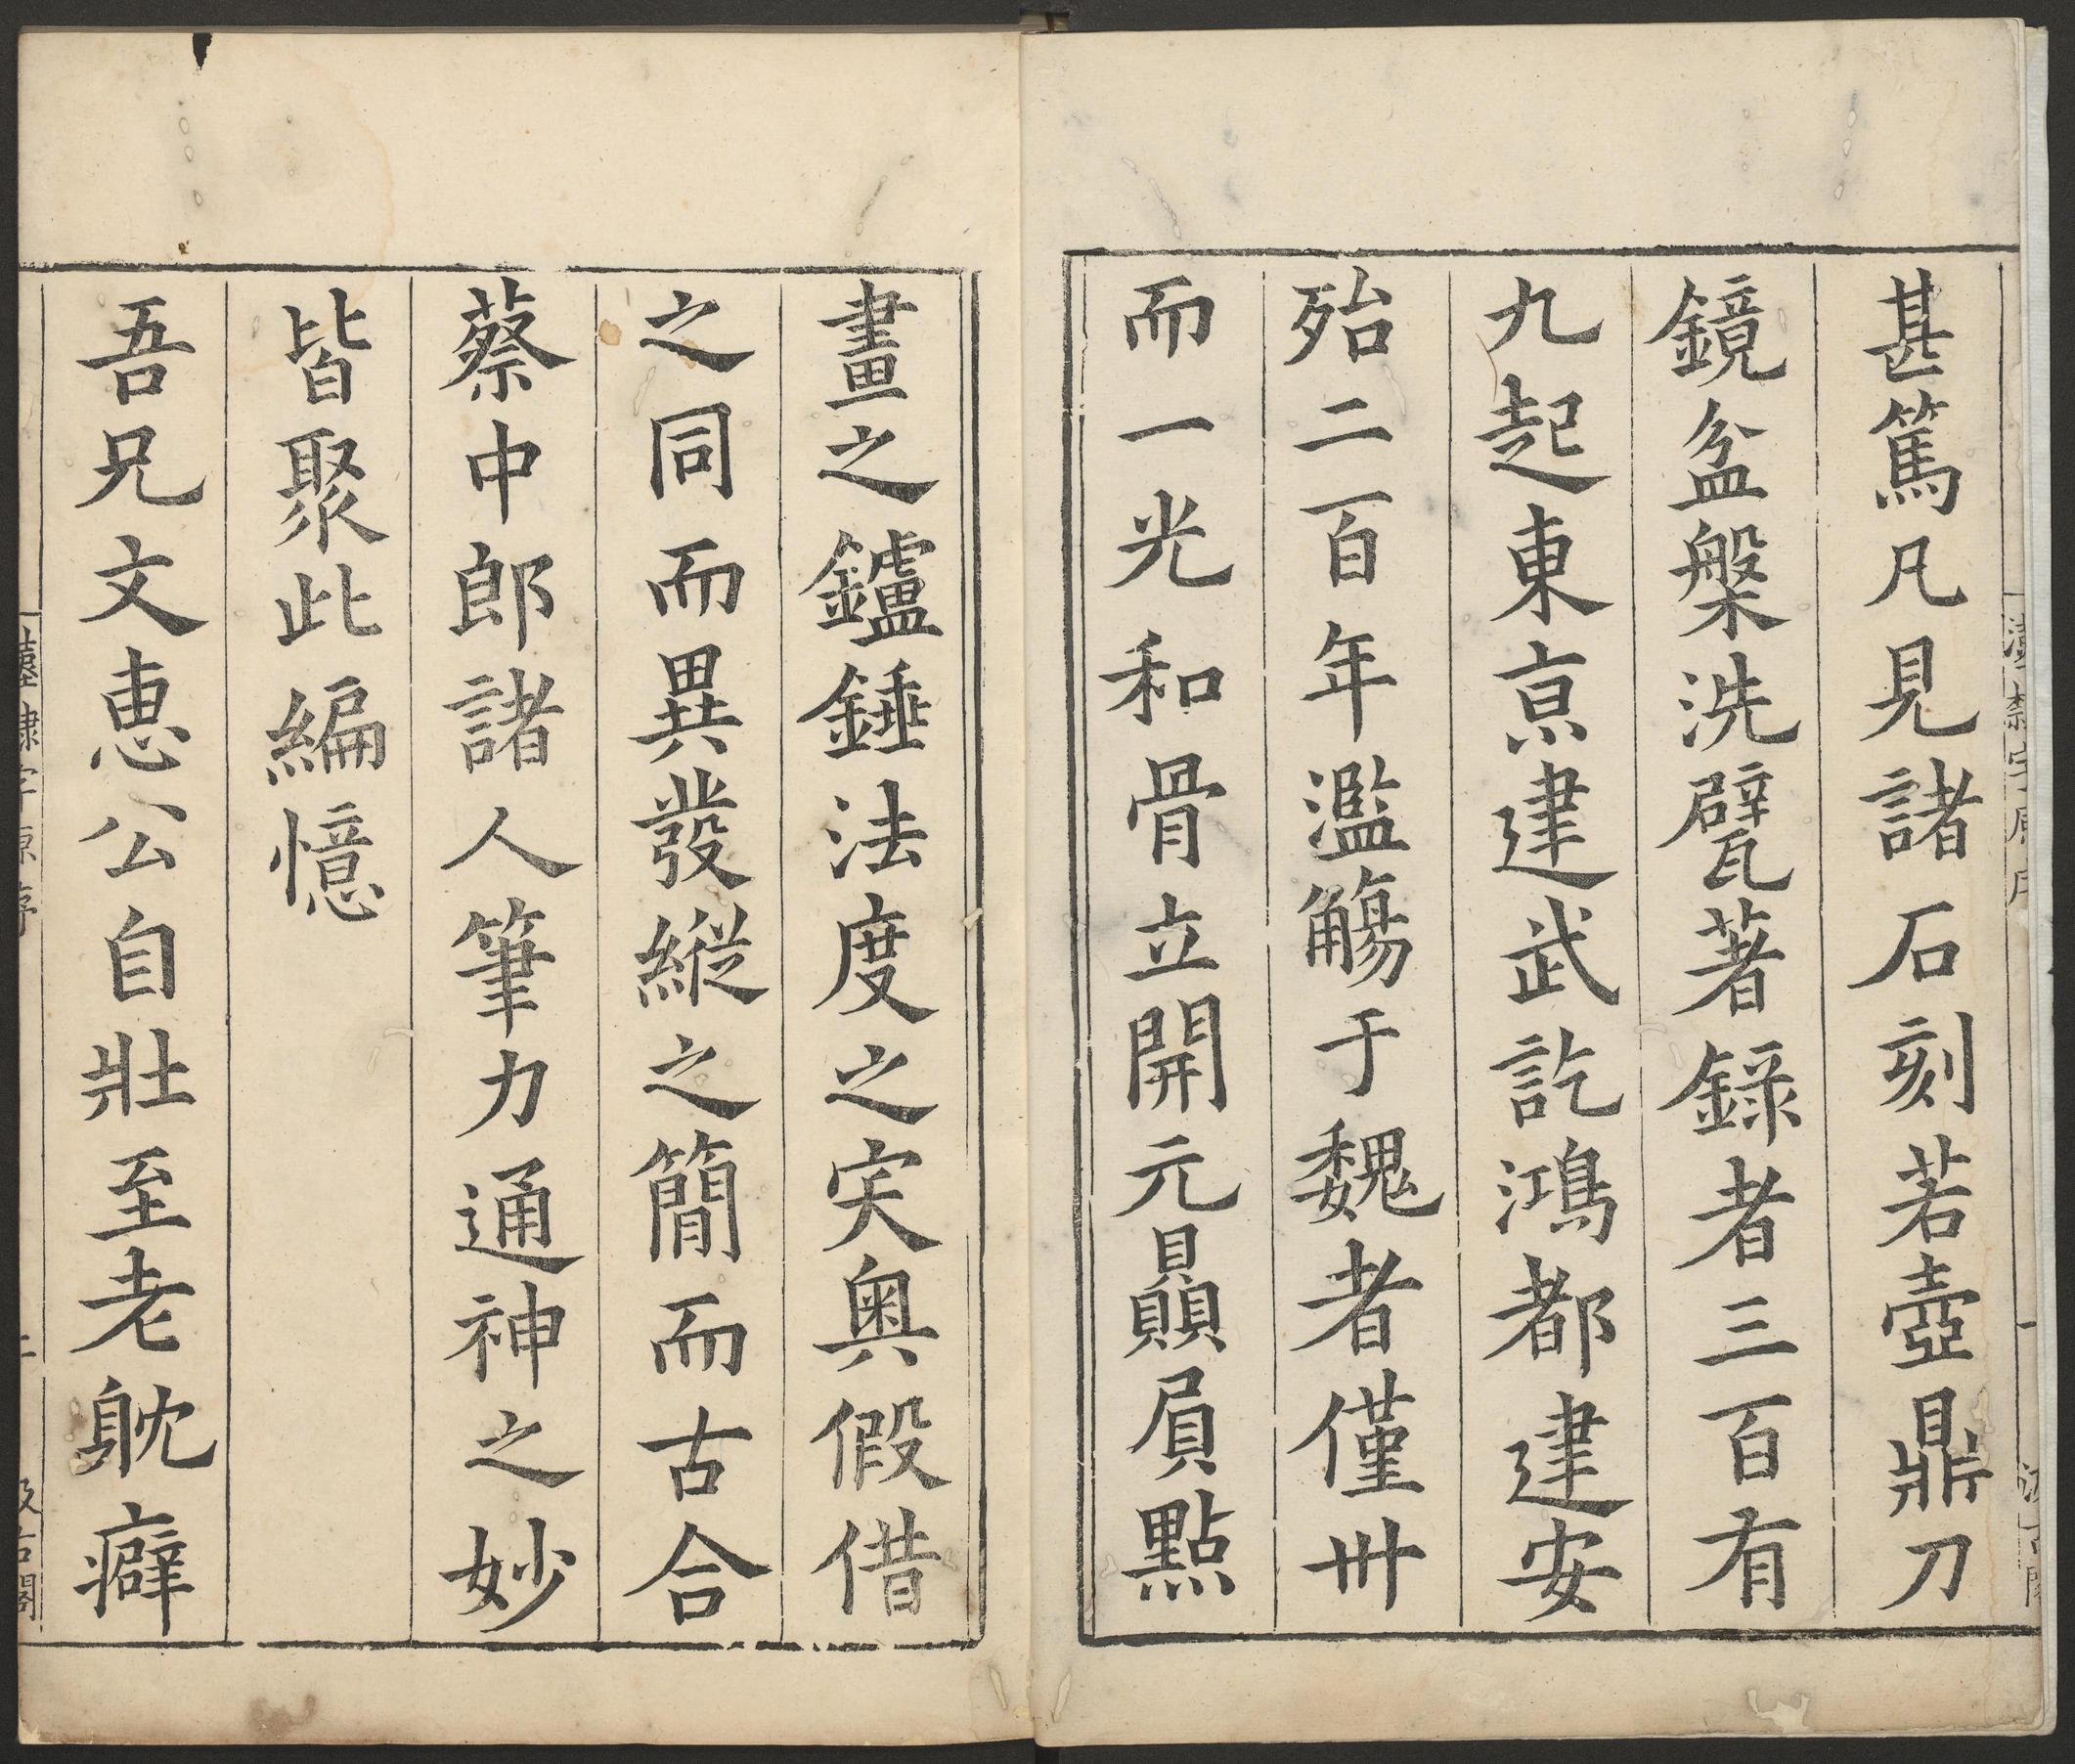 甚篤凡見諸石刻若壺鼎刀
鏡盆槃洗甓著録者三百有
九起東亰建武訖鴻都建安
殆二百年濫觴于魏者僅卅
而一光和骨立開元贔屓點
畫之鑪錘法度之宎奥假借
之同而異發縱之簡而古合
蔡中郎諸人筆力通神之妙
皆聚此編憶
吾兄文恵公自壯至老躭癖
隸字原序
二
汲古閣